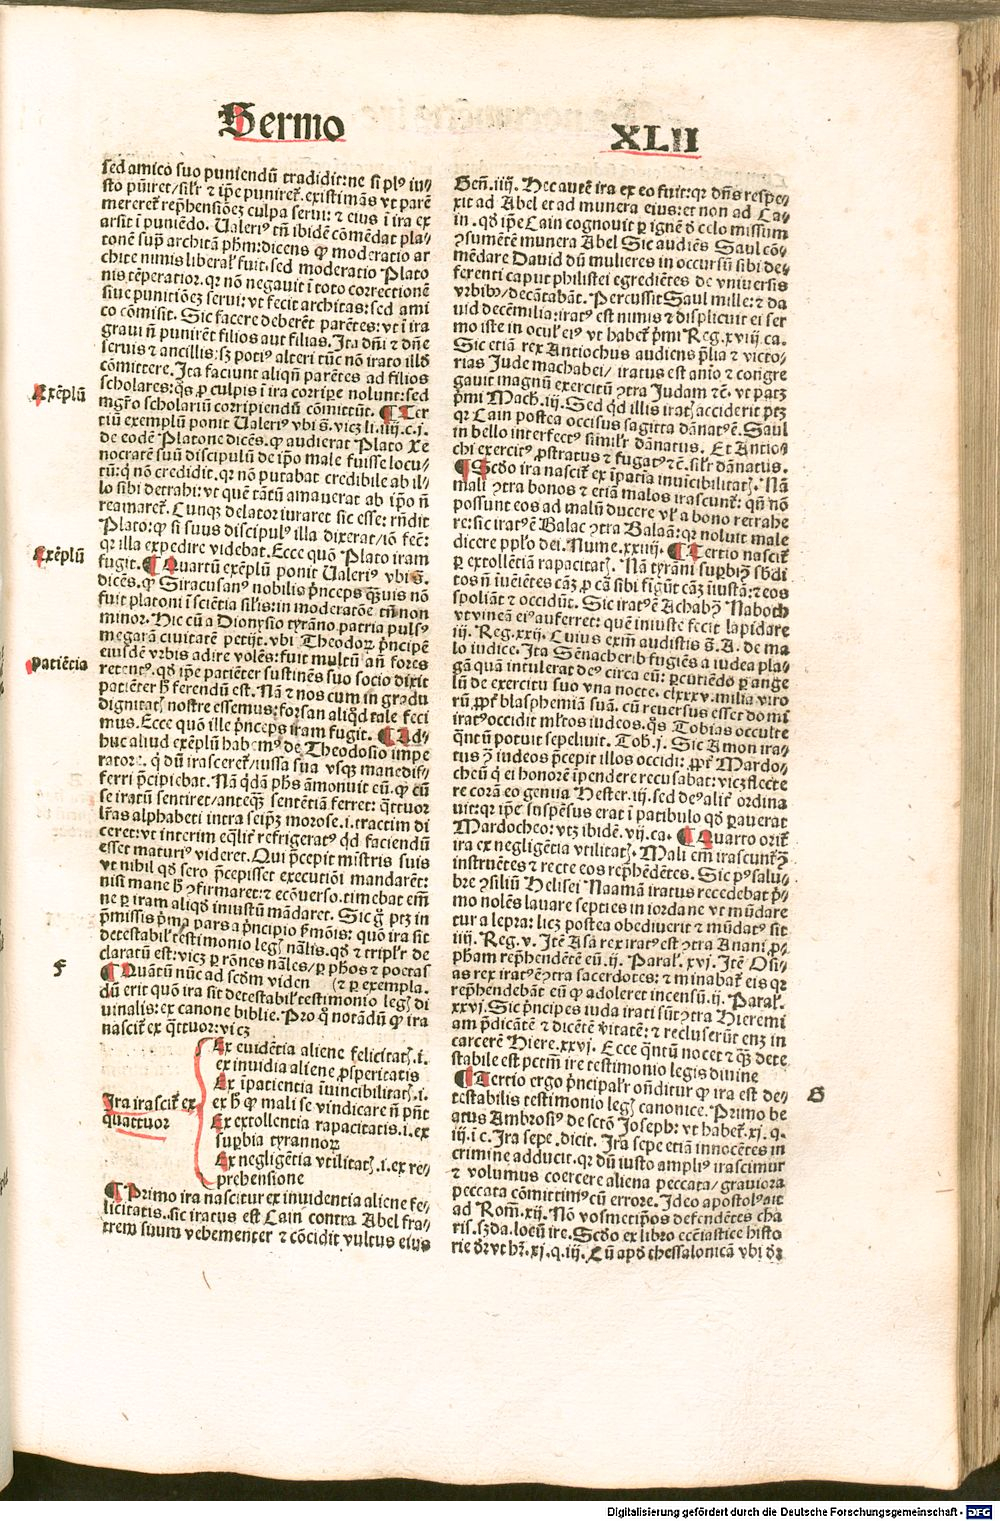 Sermo
XLII
sed amico suo puniendū tradidit: ne si plꝰ iu⸗
sto pūiret/silr̄ ⁊ ip̄e punireť. existimās vt parē
mereret̄ rep̄hensiōeꝫ culpa serui: ⁊ eius ī ira ex
arsit ī puniēdo. Ualeriꝰ tn̄ ibidē cōmēdat pla⸗
tonē sup̄ architā ph̄m: dicens ꝙ moderatio ar
chite nimis liberal̕ fuit. sed moderatio Plato
nis tēperatior. qr nō negauit ī toto correctionē
siue punitiōeꝫ serui: vt fecit architas: sed ami
co cōmisit. Sic facere deberēt parētes: vt ī ira
graui n̄ punirēt filios aut filias. Ita dn̄i ⁊ dn̄e
seruis ⁊ ancillis: sꝫ potiꝰ alteri tūc nō irato illd̕
cōmittere. Ita faciunt aliqn̄ parētes ad filios
scholares: q̄s ꝓ culpis ī ira corriꝑe nolunt: sed
mgr̄o scholariū corripiendū cōmittūt. ¶ Ter
Exēplū
tiū exemplū ponit Ualeriꝰ vbi s̄. vicꝫ li. iiij. c. j.
de eodē Platone dicēs. ꝙ audierat Plato Xe
nocratē suū discipulū de ip̄o male fuisse locu⸗
tū: q̇ nō credidit. qr nō putabat credibile ab il⸗
lo sibi detrahi: vt quē tātū amauerat ab ip̄o n̄
reamareť. Cunqꝫ delator iuraret sic esse: rn̄dit
Plato: ꝙ si suus discipulꝰ illa dixerat/iō fec̄:
qr illa expedire videbat. Ecce quō Plato iram
Exēplū
fugit. ¶ Quartū exēplū ponit Ualeriꝰ vbi s̄.
dicēs. ꝙ Siracusanꝰ nobilis p̄nceps q̄ꝫuis nō
fuit platoni ī sciētia sil̄is: in moderatōe tn̄ non
minor. Hic cū a Dionysio tyrāno patria pulsꝰ
megarā ciuitatē petijt. vbi Theodoꝝ p̄ncipē
eiusdē vrbis adire volēs: fuit multū an̄ fores
Patiētia
retentꝰ. qd̕ ip̄e patiēter sustinēs suo socio dixit
patiēter h̄ ferendū est. Nā ⁊ nos cum in gradu
dignitat̄ nostre essemus: forsan aliqd̕ tale feci
mus. Ecce quō ille p̄nceps iram fugit. ¶ Ad⸗
huc aliud exēplū habemꝰ de Theodosio impe
ratore. q̇ dū irascereť/iussa sua vsqꝫ mane dif⸗
ferri p̄cipiebat. Nā q̇dā ph̄s āmonuit eū. ꝙ cū
se iratū sentiret/anteq̄ꝫ sentētiā ferret: q̄ttuor
lr̄as alphabeti intra seip̄ꝫ morose. i. tractim di
ceret: vt interim eq̄liť refrigeratꝰ qd̕ faciendū
esset maturiꝰ videret. Qui p̄cepit mīstris suis
vt nihil qd̕ sero p̄cepisset executiōi mandarēt:
nisi mane h̄ ꝯfirmaret: ⁊ ecōuerso. timebat em̄
ne ꝑ iram aliqd̕ iniustū mādaret. Sic g̊ ptꝫ in
p̄missis p̄ma pars a p̄ncipio ẜmōis: quō ira sit
detestabil̕ testimonio leḡ nāl̄is. qd̕ ⁊ tripl̄r de
claratū est: vicꝫ ꝑ rōnes nāl̄es/ꝑ ph̄os ⁊ poetas
F
¶ Quātū nūc ad scd̄m viden (⁊ ꝑ exempla.
dū erit quō ira sit detestabil̕ testimonio leḡ di
uinalis: ex canone biblie. Pro q̊ notādū ꝙ ira
nasciť ex q̄ttuor: vicꝫ
Ira irasciť ex
quattuor
Ex euidētia aliene felicitat̄. i.
ex inuidia aliene ꝓsperitatis
Ex īpatientia īuincibilitat̄. i.
ex h̄ ꝙ mali se vindicare n̄ pn̄t
Ex extollentia rapacitatis. i. ex
supbia tyrannoꝝ
Ex negligētia vtilitat̄. i. ex re⸗
prehensione
¶ Primo ira nascitur ex inuidentia aliene fe⸗
licitatis. sic iratus est Cain contra Abel fra⸗
trem suum vehementer ⁊ cōcidit vultus eius
Gen̄. iiij. Hec autē ira ex eo fuit: qr dn̄s respe⸗
xit ad Abel et ad munera eius: et non ad Ca⸗
in. qd̕ ip̄e Cain cognouit ꝑ ignē d̕ celo missum
ꝯsumētē munera Abel Sic audiēs Saul cō⸗
mēdare Dauid dū mulieres in occursū sibi de⸗
ferenti caput philistei egrediētes de vniuersis
vrbibꝰ/decātabāt. Percussit Saul mille: ⁊ da
uid decēmilia: iratꝰ est nimis ⁊ displicuit ei ser
mo iste in ocul̕ eiꝰ vt habeť p̄mi Reg. xviij. ca.
Sic etiā rex Antiochus audiens p̄lia ⁊ victo⸗
rias Jude machabei/ iratus est aīo ⁊ cōgre
gauit magnū exercitū ꝯtra Judam ⁊c̄. vt patꝫ
p̄mi Mach. iij. Sed qd̕ illis irat̄ acciderit ptꝫ
qr Cain postea occisus sagitta dānatꝰ ē. Saul
in bello interfectꝰ simil̕r dānatus. Et Antio⸗
chi exercitꝰ ꝓstratus ⁊ fugatꝰ ⁊c̄. sil̕r dānatus.
¶ Scd̕o ira nasciť ex īpatiā inuicibilitat̄. Nā
mali ꝯtra bonos ⁊ etiā malos irascunť: qn̄ nō
possunt eos ad malū ducere vl̕ a bono retrahe
re: sic iratꝰ ē Balac ꝯtra Balaā: qr noluit male
dicere pplo dei. Nume. xxiiij. ¶ Tertio nasciť
ꝑ extollētiā rapacitat̄. Nā tyrāni supbiꝫ sb̄di
tos n̄ īueiētes cāꝫ ꝓ cā sibi figūt cāꝫ īiustā: ⁊ eos
spoliāt ⁊ occidūt. Sic iratꝰ ē Achab ꝯ Naboth
vt vineā eiꝰ auferret: quē iniuste fecit lapidare
iij. Reg. xxij. Cuius exm̄ audistis s̄. A. de ma
lo iudice. Ita Senacherib fugiēs a iudea pla⸗
gā quā intulerat deꝰ circa eū: ꝑcutiēdo ꝑ ange
lū de exercitu suo vna nocte. clxxxv. milia viro
rū ꝓpť blasphemiā suā. cū reuersus esset domi
iratꝰ occidit ml̕tos iudeos. q̄s Tobias occulte
q̄ntū potuit sepeliuit. Tob. j. Sic Amon ira⸗
tus ꝯ iudeos p̄cepit illos occidi: ꝓpť Mardo⸗
cheū q̇ ei honorē īpendere recusabat: vicꝫ flecte
re corā eo genua Hester. iij. sed deꝰ aliť ordina
uit: qr ip̄e suspēsus erat ī patibulo qd̕ ꝑauerat
Mardocheo: vtꝫ ibidē. vij. ca. ¶ Quarto oriť
ira ex negligētia vtilitat̄. Mali em̄ irascunť ꝯ
instruētes ⁊ recte eos rep̄hēdētes. Sic pꝰ salu⸗
bre ꝯsiliū Helisei Naamā iratus recedebat p̄⸗
mo nolēs lauare septies in iordane vt mūdare
tur a lepra: licꝫ postea obediuerit ⁊ mūdatꝰ sit
iiij. Reg. v. Itē Asa rex iratꝰ est ꝯtra Anani ꝓ⸗
ph̄am rep̄hendētē eū. ij. Paral̕. xvj. Itē Osi⸗
as rex iratꝰ ē ꝯtra sacerdotes: ⁊ minabať eis qr
rep̄hendebāt eū ꝙ adoleret incensū. ij. Paral̕.
xxvj. Sic p̄ncipes iuda irati sūt ꝯtra Hieremi
am p̄dicātē ⁊ dicētē v̄itatē: ⁊ recluserūt eūꝫ in
carcerē Hiere. xxvj. Ecce q̄ntū nocet ⁊ q̄ꝫ dete
stabile est pctm̄ ire testimonio legis diuine
G
¶ Tertio ergo p̄ncipal̕r on̄ditur ꝙ ira est de⸗
testabilis testimonio leḡ canonice. Primo be
atus Ambrosiꝰ de sctō Joseph: vt habeť. xj. q.
iij. i c. Ira sepe. dicit. Ira sepe etiā innocētes in
crimine adducit. qr dū iusto ampliꝰ irascimur
⁊ volumus coercere aliena peccata/grauiora
peccata cōmittimꝰ cū errore. Ideo apostolꝰ ait
ad Rom̄. xij. Nō vosmetip̄os defendētes cha
ris. sꝫ da. locū ire. Scd̕o ex libro ecc̄iastice histo
rie d̕r vt hr̄. xj. q. iij. Cū apd̕ thessalonicā vbi d̕r
Digitalisierung gefördert durch die Deutsche Forschungsgemeinschaft - DFG